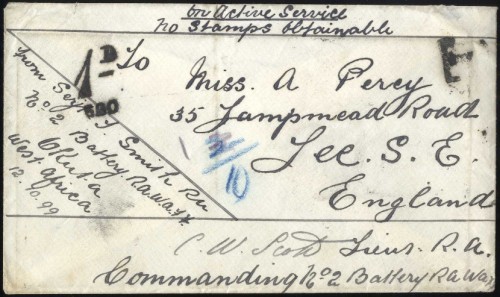 On Active Service
No Stamps Obtainable
1D
680
To
Miss. A Percy
35 Lampmead Road
Lee. S. E.
England
from Sergt J Smith RA
No. 2 Battery R.A.W.A.
West Africa
12.10.99
/10
C. W. Scott Lieut. R. A.
Commanding No 2 Battery RA Wa